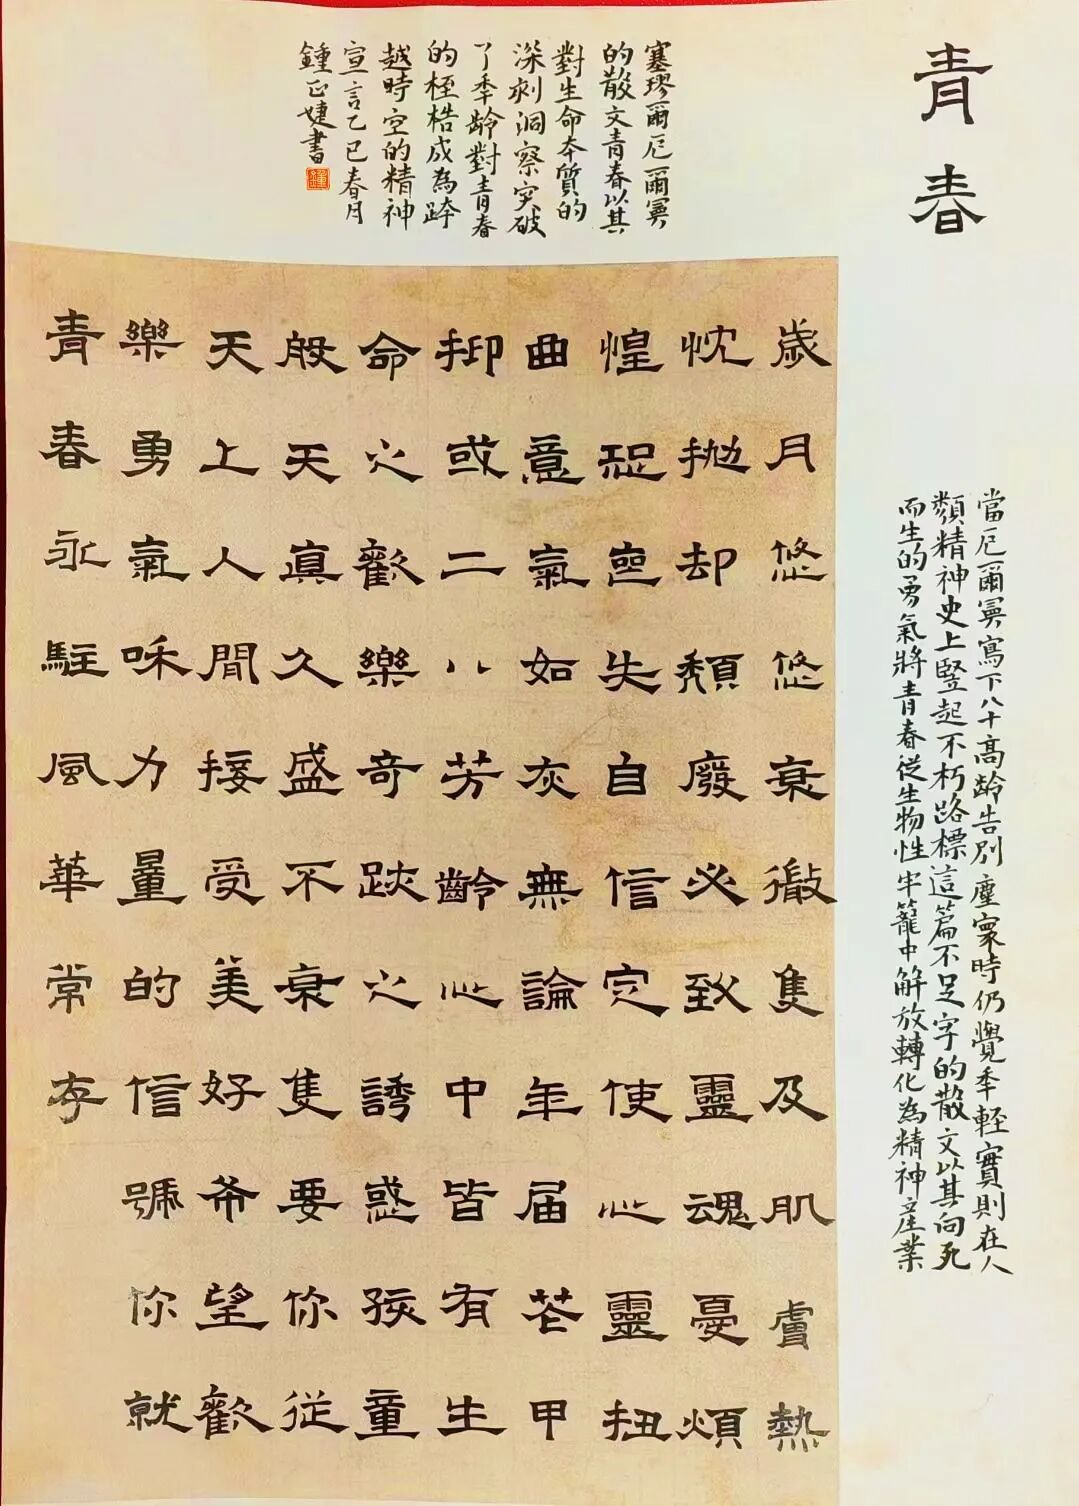 青春
當厄爾冥寫下八十高龄告别塵寰時仍覺年輕實則在人
類精神史上竪起不朽路標這篇不足字的散文以其向死
而生的勇氣將青春從生物性牢籠中解放轉化為精神產業
歲月悠悠衰徵隻及肌膚熱
忱抛却頹廢必致靈魂憂煩
惶恐喪失自信定使心靈扭
曲意氣如灰無論年届芒甲
抑或二八芳齡心中皆有生
命之歡樂奇跡之誘惑孩童
般天真久盛不衰隻要你從
天上人間接受美好希望歡
樂勇氣和力量的信號你就
青春永駐風華常存
塞璆爾厄爾冥
的散文青春以其
對生命本質的
深刻洞察突破
了年龄對青春
的桎梏成為跨
越時空的精神
宣言乙巳春月
鍾正婕書